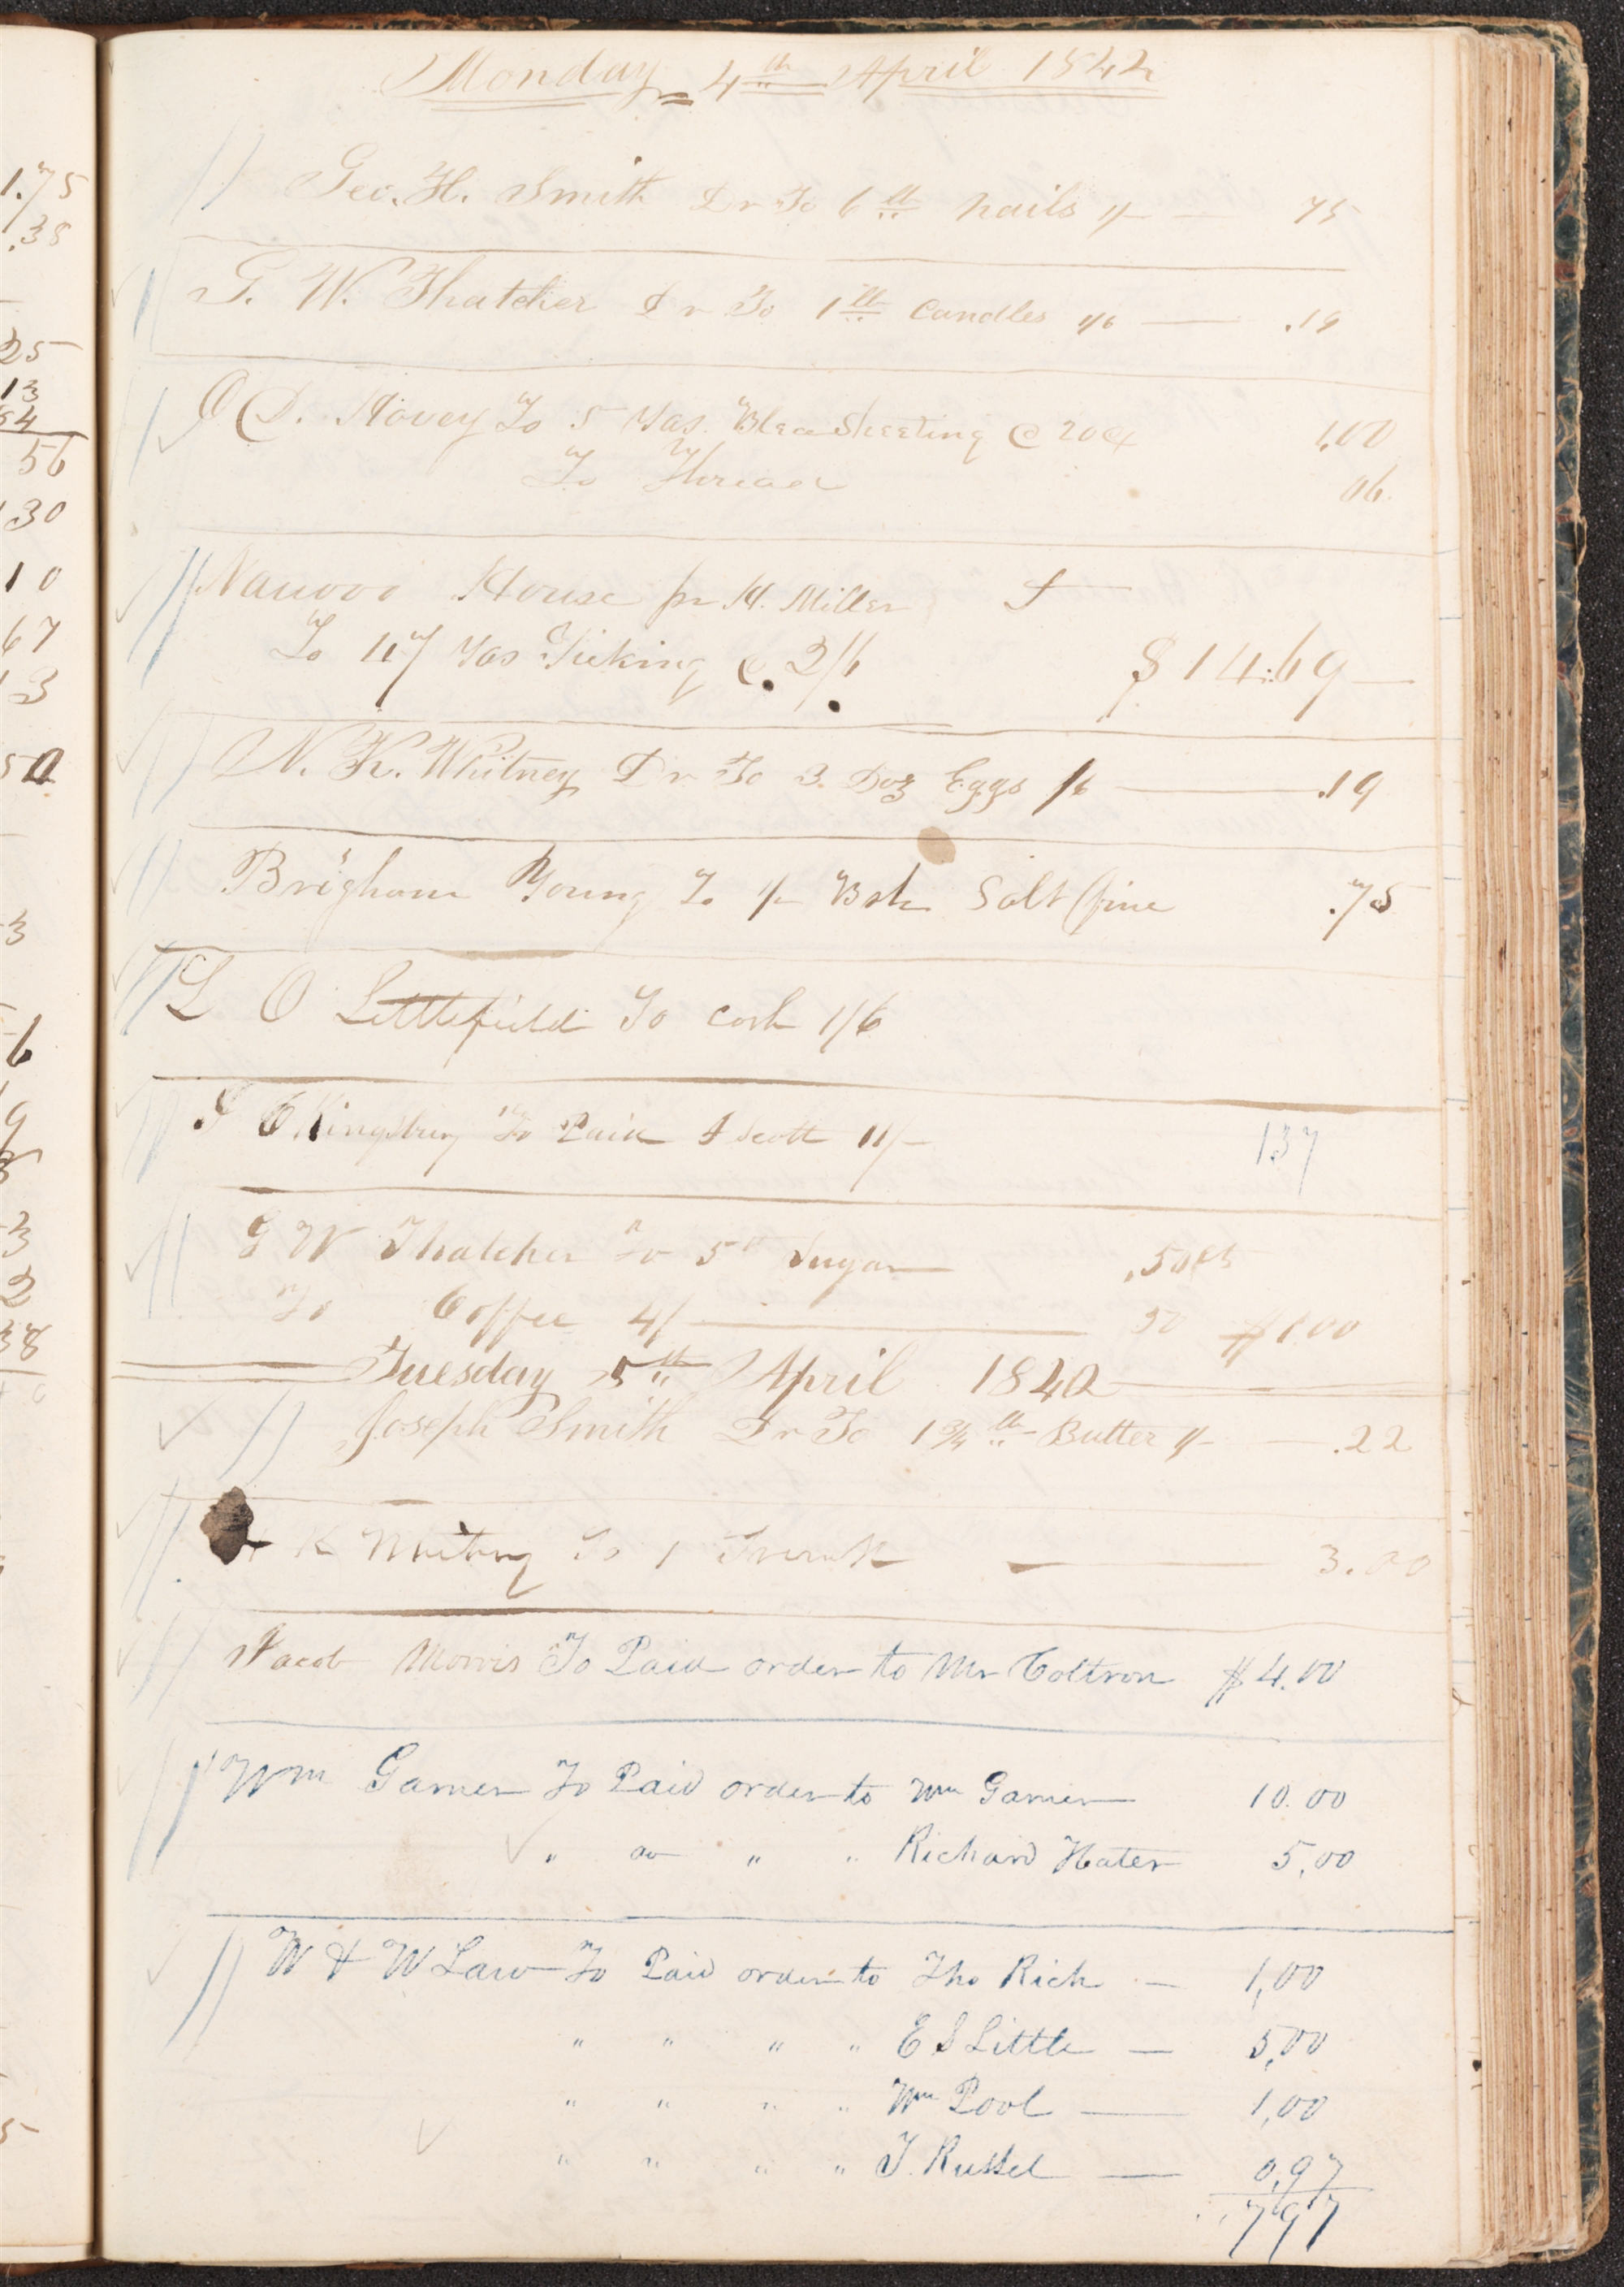 1.75
.38
25
13
84
56
130
10
67
13
50
3
6
9
3
2
38
5
Monday 4th April 1842
Geo. H. Smith Dr To 6 lb nails 1/- — 75
G. W. Thatcher Dr To 1 lb Candles 1/6 — .19
O D. Hovey To 5 Yds. Blea Sheeting @ 20cts 1.00
To Thread 06
Nauvoo House pr H. Miller
To 47 Yds Ticking @ 2/6 $14.69
N. K. Whitney Dr To 3 Doz Eggs /6 — .19
Brigham Young To ½ Bsh Salt (fine .75
L O Littlefield To Cash 1/6
J C Kingsbury To Paid J Scott 11/- 137
G W Thatcher To 5 lb Sugar .50cts
To Coffee 4/ — 50 $1.00
Tuesday 5th April 1842
Joseph Smith Dr To 1 3/4 lb Butter 1/- — .22
K Whitney To 1 Trunk — 3.00
Jacob Morris To Paid order to Mr Coltron $4.00
Wm Garner To Paid order to Wm Garner 10.00
" do " " Richard Hater 5.00
W & W Law To Paid order to Tho Rich — 1,00
" " " " E S Little — 5,00
" " " " Wm Pool — 1,00
" " " " J. Russel — 0,97
7,97